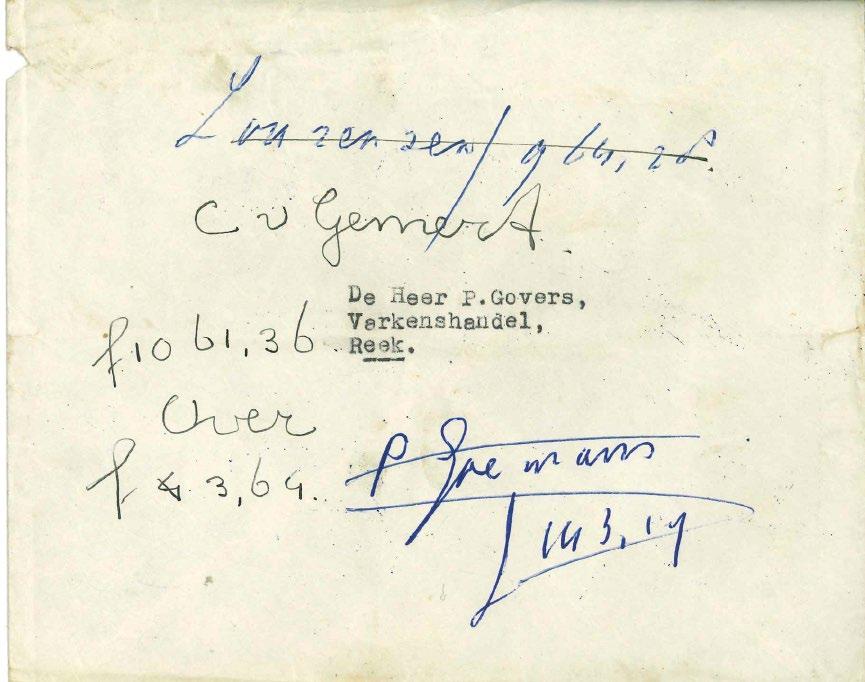 Lourensen f 964,28.
C v Gemert.
De Heer P.Govers,
Varkenshandel,
Reek.
f 1061,36
Over
f 43,64.
P
f 1113,19